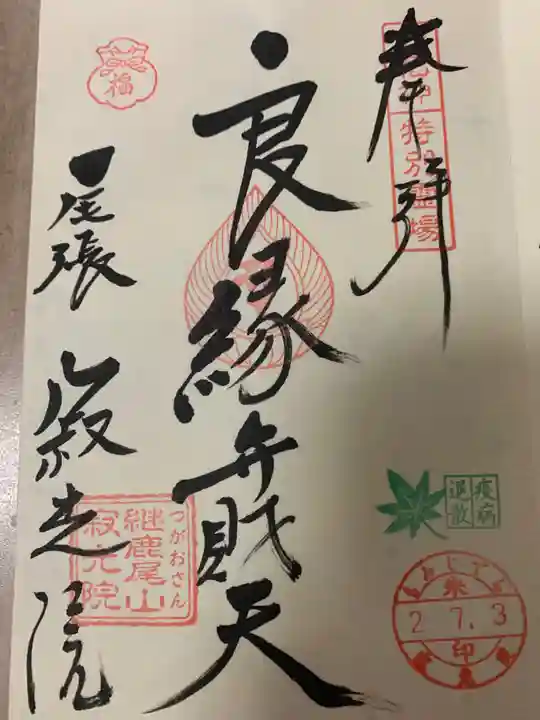 奉拝
特別霊場
良縁弁財天
尾張 寂光院
福
つがおさん
継鹿尾山
寂光院
疫病
退散
2.7.3
朱
印